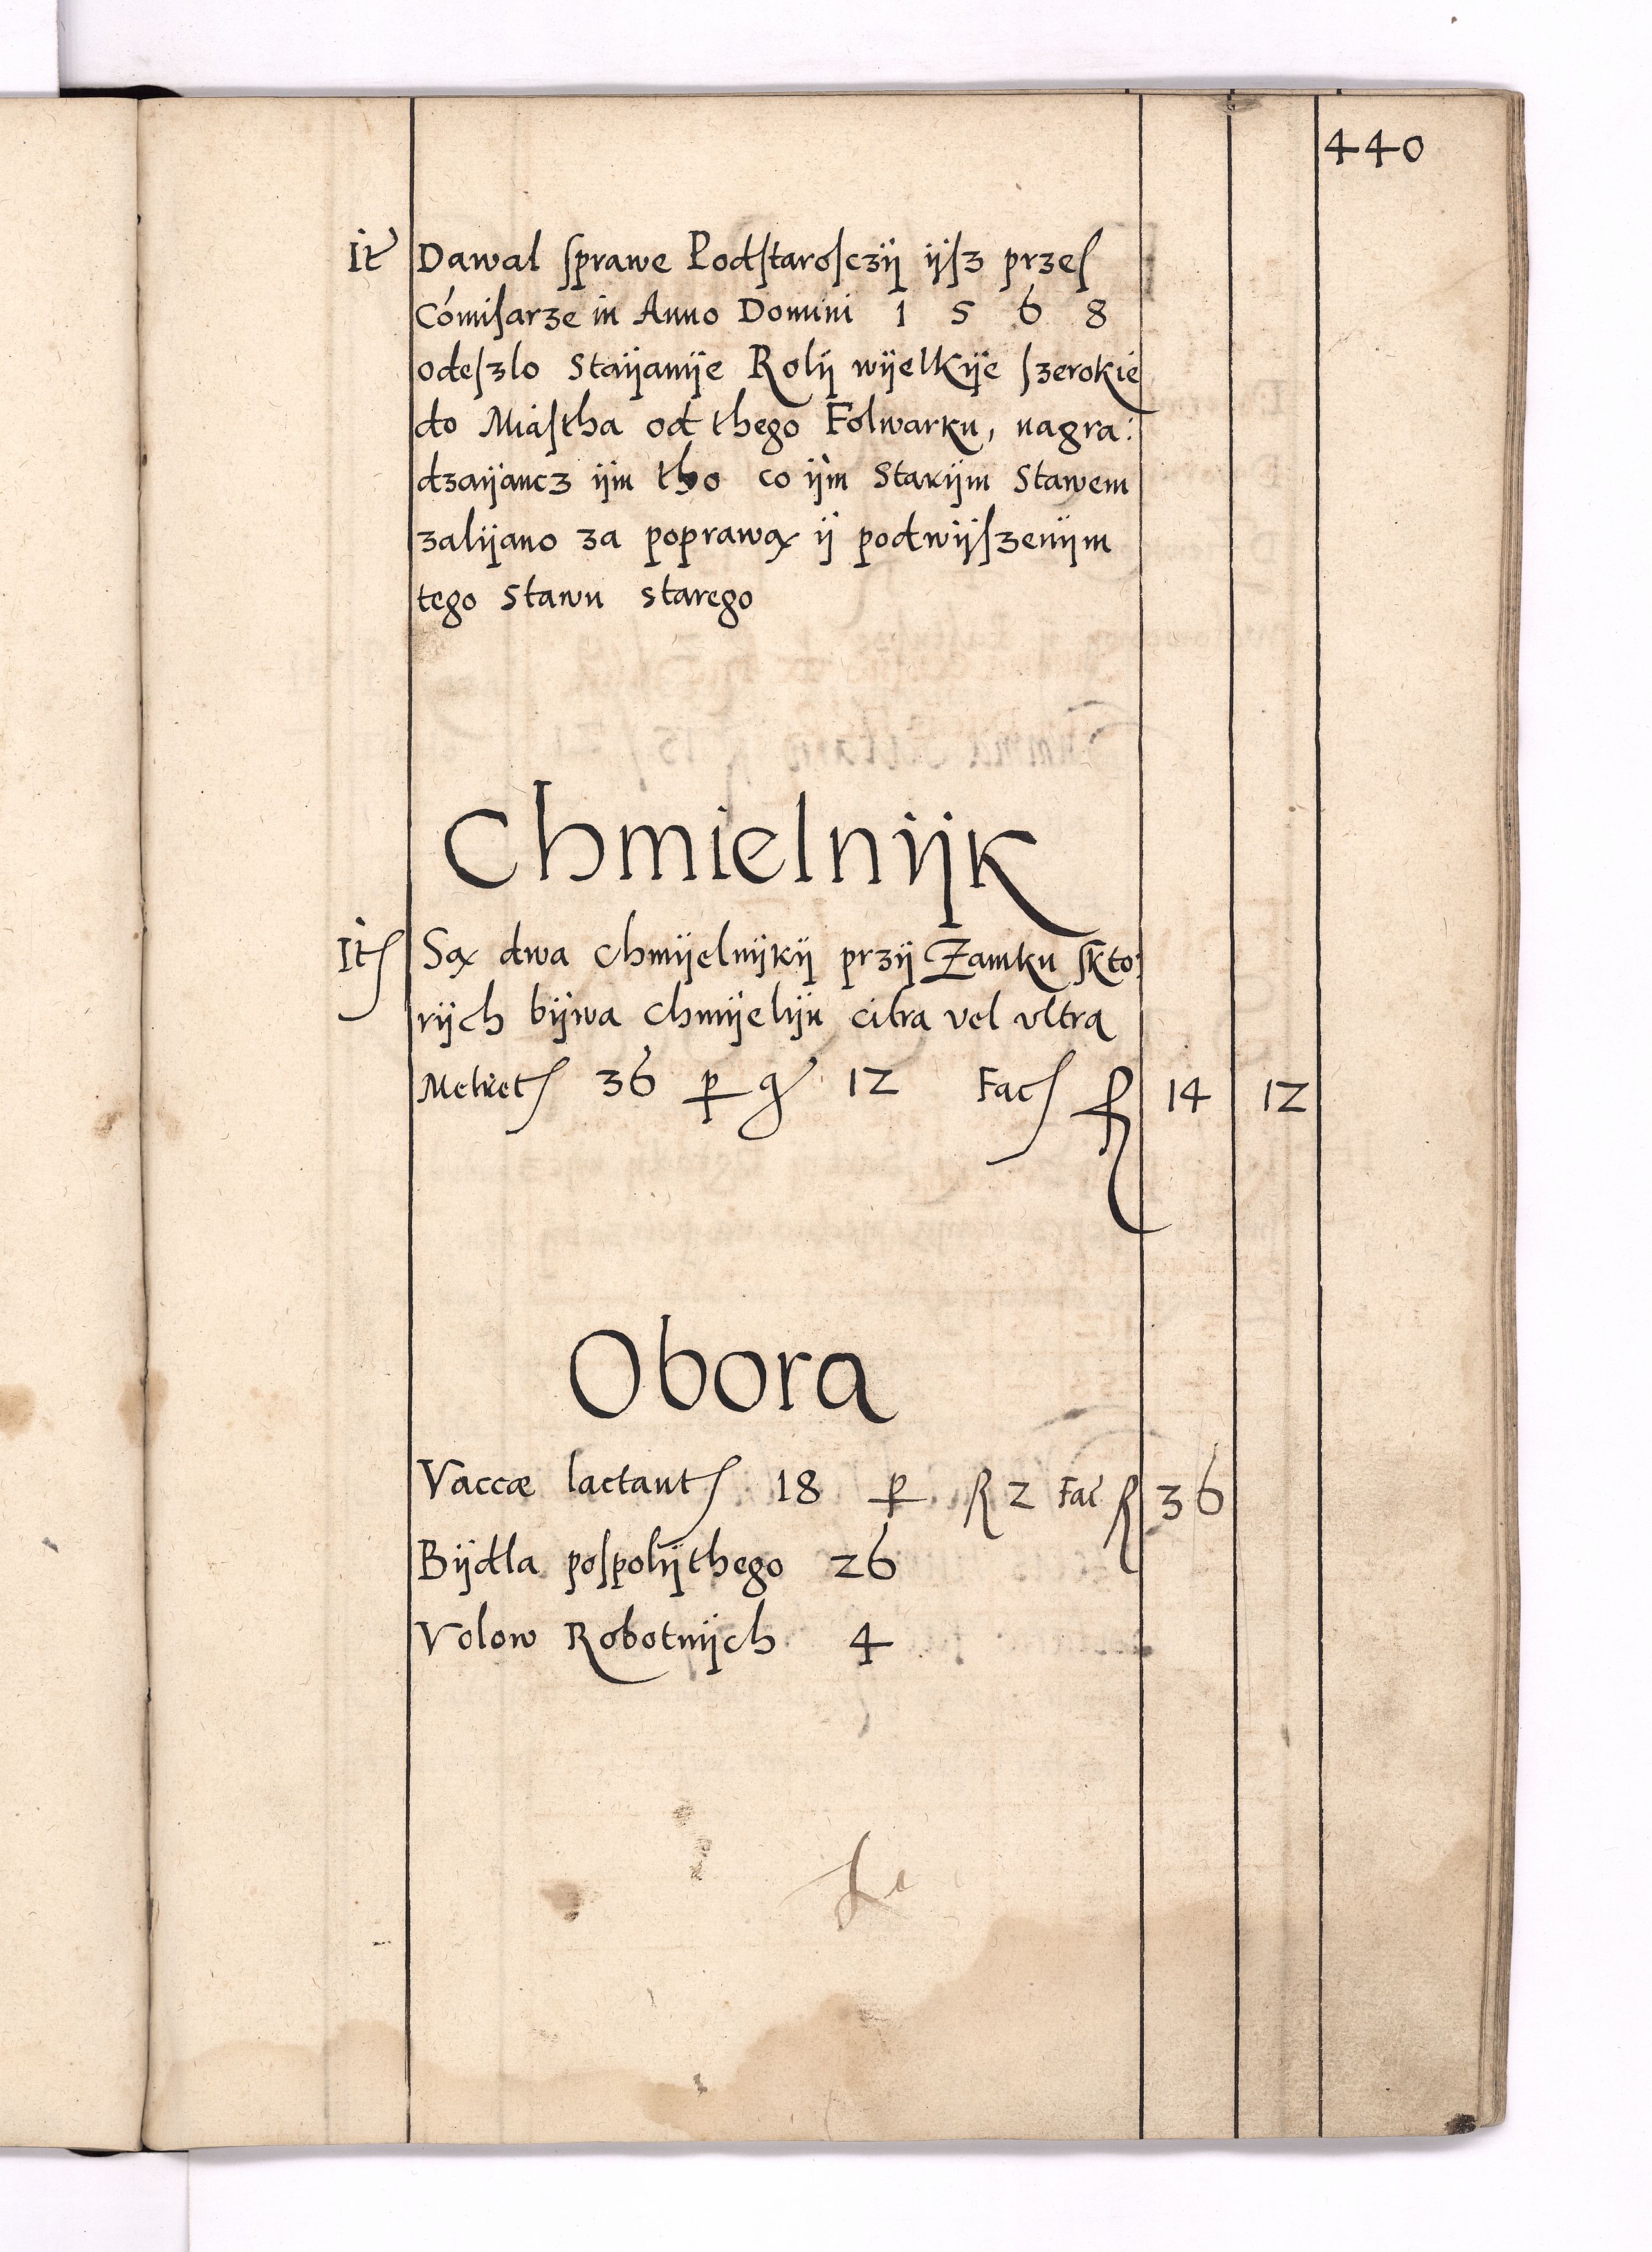 440
It Dawal sprawe Podstarosczÿ ÿsz przes
Comisarze in Anno Domini 1 5 6 8
odeszlo Staÿanÿe Rolÿ wÿelkÿe szerokie
do Miastha od thego Folwarku, nagra:
dzaÿancz ÿm tho co ÿm Starÿm Stawem
zalÿano za poprawą ÿ podwÿszenÿm
tego Stawu starego
Chmielnÿk
It Są dwa Chmÿelnÿkÿ przÿ Zamku skto:
rÿch bÿwa Chmÿelÿu citra vel vltra
Metret 36 p gʳ 12 Fac fl 14 12
Obora
Vaccæ lactant 18 p fl 2 Fac fl 36
Bÿdla pospolÿthego 26
Volow Robotnÿch 4